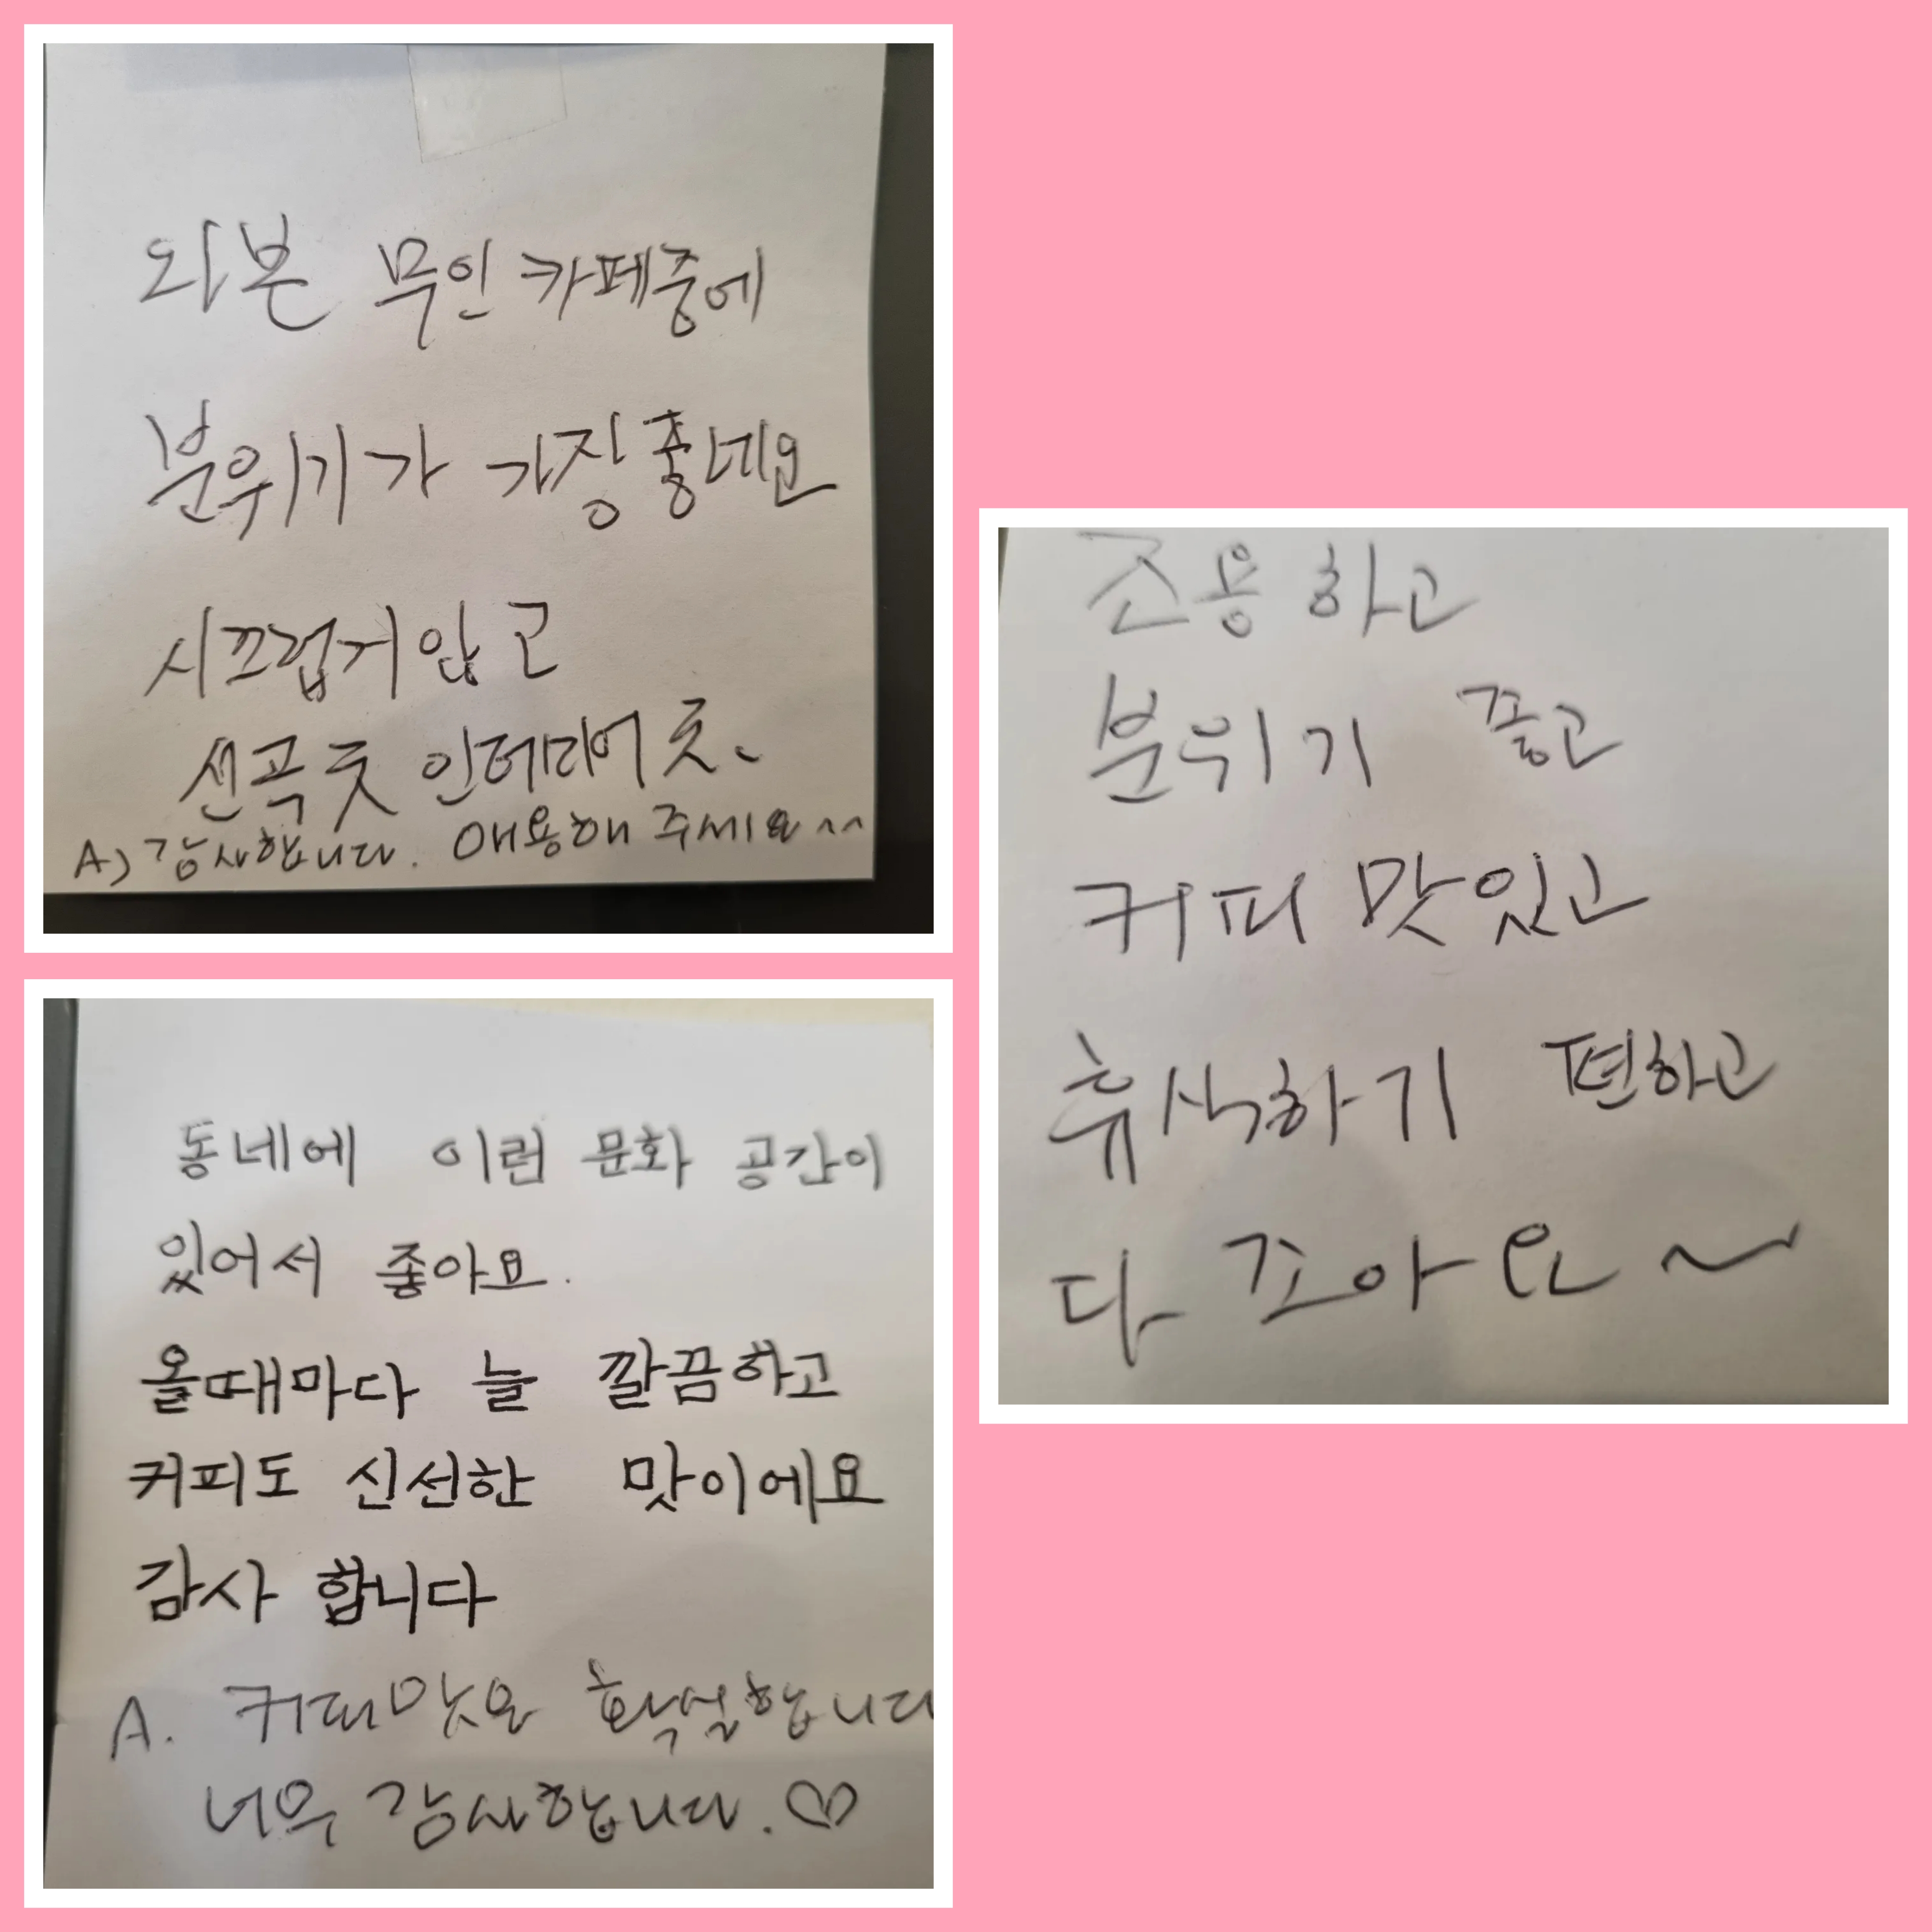 와본 무인 카페중에
분위기가 가장 좋네요
시끄럽게 않고
선곡 굿 인테리어 굿.
A) 감사합니다. 애용해 주세요^^
동네에 이런 문화 공간이
있어서 좋아요.
올때마다 늘 깔끔하고
커피도 신선한 맛이에요
감사 합니다
A. 커피맛은 확실합니다
너무 감사합니다. ♡
조용하고
분위기 좋고
커피 맛있고
휴식하기 편하고
다 꼬아요~